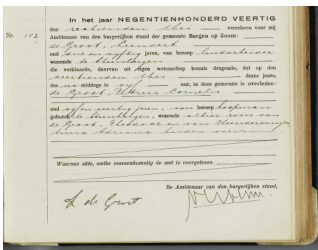 In het jaar NEGENTIENHONDERD VEERTIG
Nr. 152
den zeventienden Mei verscheen voor mij
Ambtenaar van den burgerlijken stand der gemeente Bergen op Zoom:
de Groot, Leendert
oud drie en vijftig jaren, van beroep
wonende te Steenbergen
die verklaarde, daarvan uit eigen wetenschap kennis dragende, dat op den
zeventienden Mei dezes jaars,
des na middags te uur, in deze gemeente is overleden:
de Groot, Cornelis
oud veertig jaren, van beroep koopman
geboren te Steenbergen, wonende alhier zoon van
de Groot, Theodoor en van
Anna Adriana beiden overleden
Waarvan akte, welke overeenkomstig de wet is voorgelezen.
De Ambtenaar van den burgerlijken stand,
L de Groot